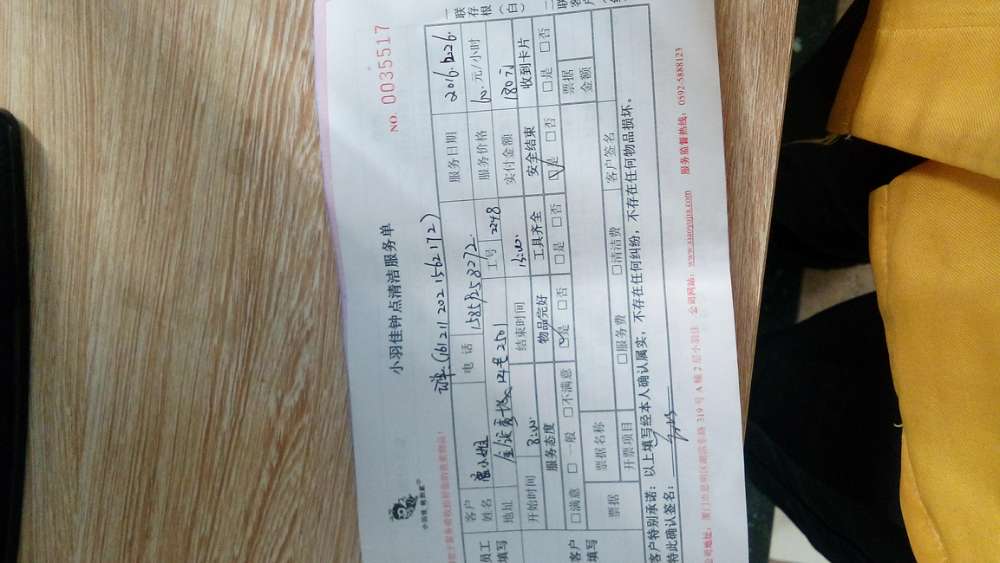 小羽佳钟点清洁服务单
NO. 0035517
一联存根(白)
二联客户
订单:(161211 202 1562172)
员工填写
客户姓名
小姐
电话
服务日期
2016.12.26.
地址
24号2501
工号
2248
服务价格
60.元/小时
开始时间
8:00
结束时间
实付金额
180元
服务态度
物品完好
工具齐全
安全结束
收到卡片
客户填写
□满意 □一般 □不满意
☑是 □否
□是 □否
☑是 □否
□是 □否
票据
票据名称
票据金额
开票项目
□服务费 □清洁费
客户签名
客户特别承诺: 以上填写经本人确认属实,不存在任何纠纷,不存在任何物品损坏。
特此确认签名:
公司地址: 厦门市思明区湖滨东路 319 号 A 幢 2 层小羽佳 公司网站: www.xiaoyujia.com 服务监督热线: 0592-5888123